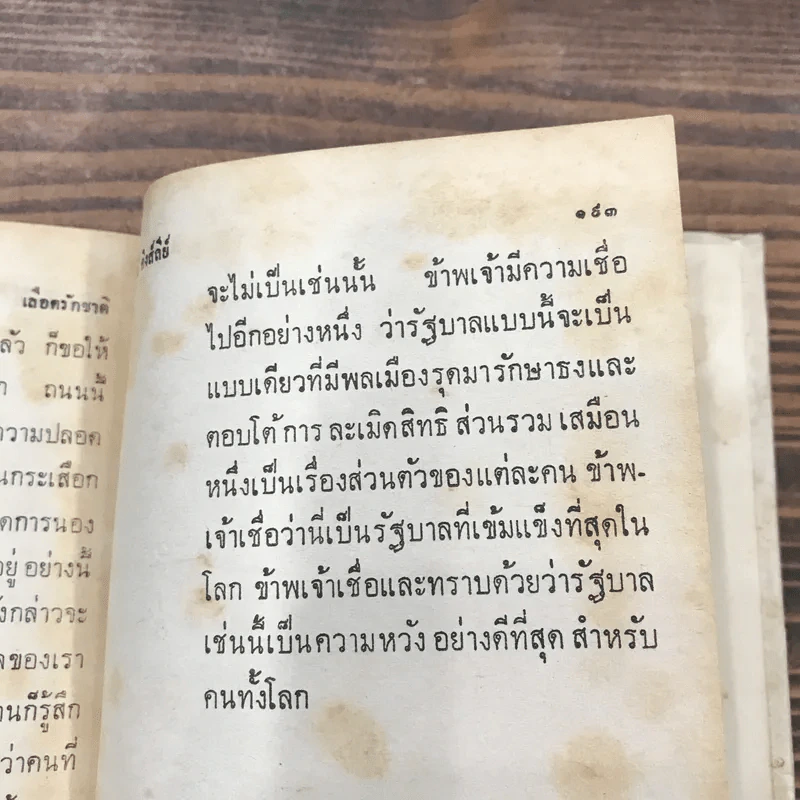 เลือดรักชาติ
ลัว ก็ขอให้
ถนนนี้
วามปลอด
นกระเสือก
ดการนอง
อยู่ อย่างนี้
งกล่าวจะ
ลของเรา
านก็รู้สึก
ว่าคนที่
๑๙๓
จะไม่เป็นเช่นนั้น ข้าพเจ้ามีความเชื่อ
ไปอีกอย่างหนึ่ง ว่ารัฐบาลแบบนี้จะเป็น
แบบเดียวที่มีพลเมืองรุดมารักษาธงและ
ตอบโต้การ ละเมิดสิทธิ ส่วนรวม เสมือน
หนึ่งเป็นเรื่องส่วนตัวของแต่ละคน ข้าพ-
เจ้าเชื่อว่านี่เป็นรัฐบาลที่เข้มแข็งที่สุดใน
โลก ข้าพเจ้าเชื่อและทราบด้วยว่ารัฐบาล
เช่นนี้เป็นความหวัง อย่างดีที่สุด สำหรับ
คนทั้งโลก